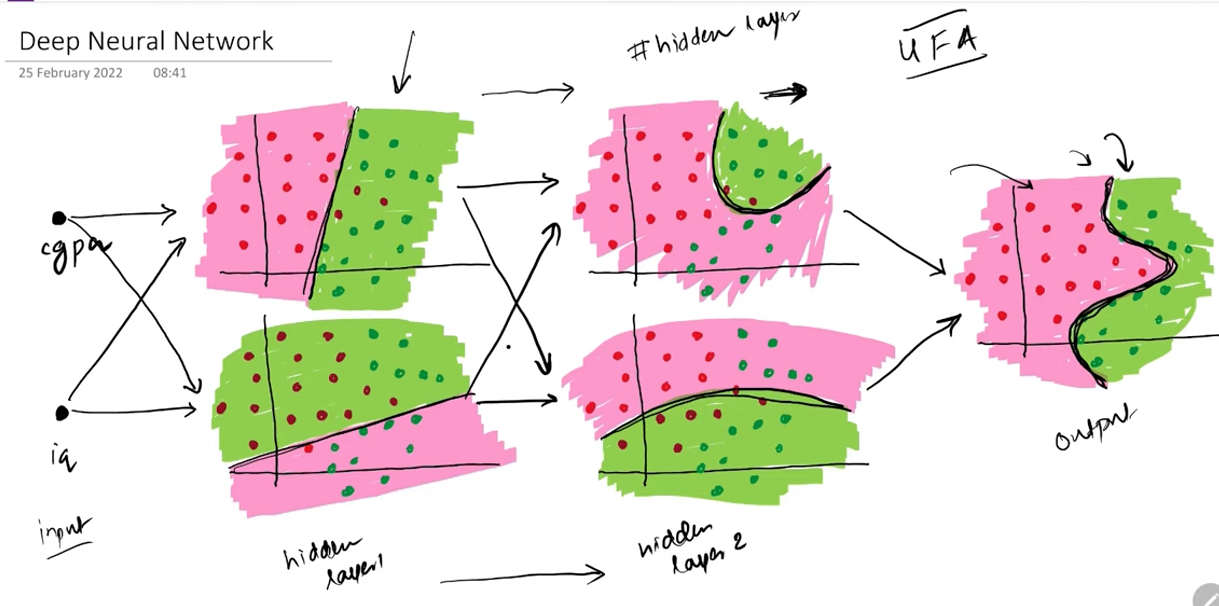 Deep Neural Network
25 February 2022 08:41
#hidden layer
UFA
cgpa
iq
input
hidden
layer1
hidden
layer 2
output